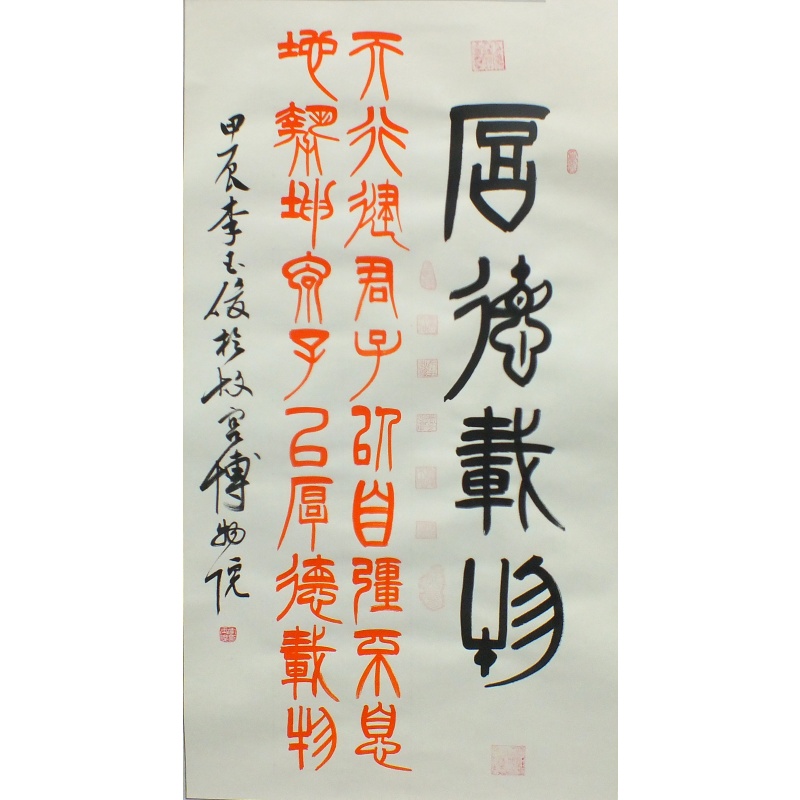 厚德載物
天行健君子以自彊不息
地勢坤君子以厚德載物
甲辰李玉俊於故宮博物院